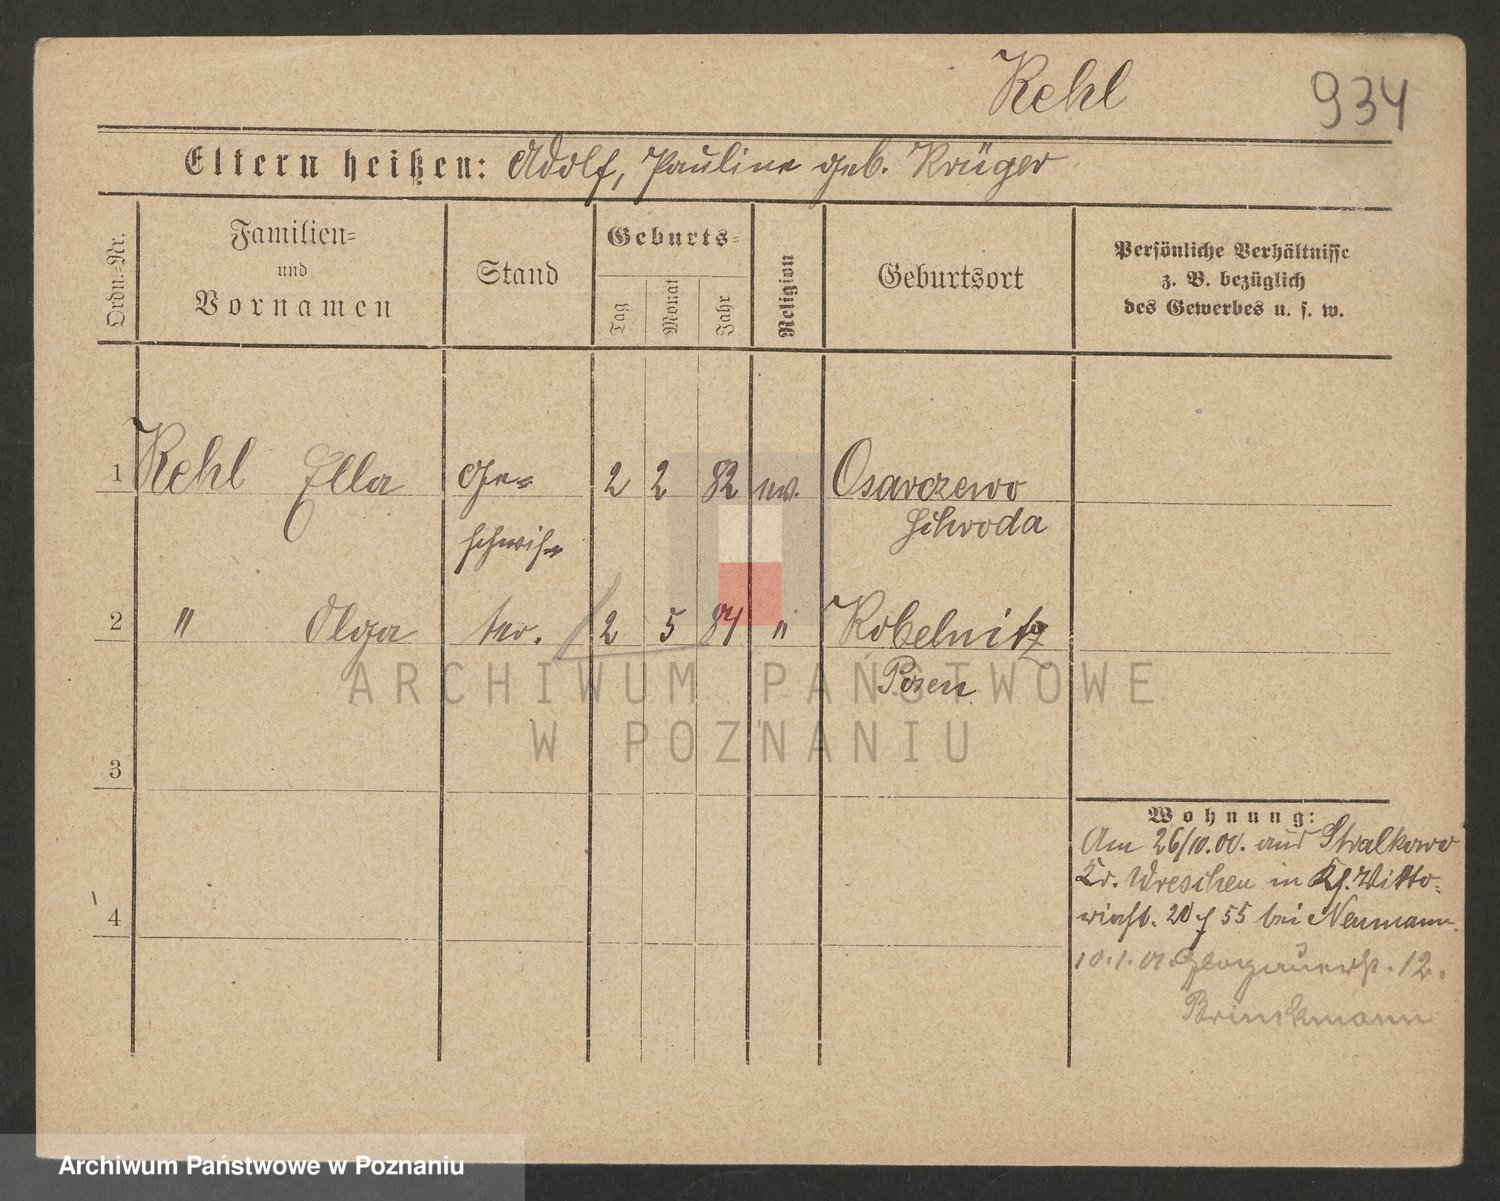 Rehl 934
Eltern heißen: Adolf, Pauline geb. Krüger
Ordn.-Nr.
Familien-
und
Vornamen
Stand
Geburts-
Tag
Monat
Jahr
Religion
Geburtsort
Persönliche Verhältnisse
z. B. bezüglich
des Gewerbes u. s. w.
1 Rehl Ella Ge- 2 2 82 ev. Osarczewo
schwis- Schroda
2 " Olga ter. 2 5 84 " Kobelnitz
Posen
ARCHIWUM PAŃSTWOWE
W POZNANIU
3
Wohnung:
Am 26/10.00. aus Stralkowo
Kr. Wreschen in
4
20 55 bei Neumann.
10.1.01. Glogauerst. 12.
Brinkmann
Archiwum Państwowe w Poznaniu